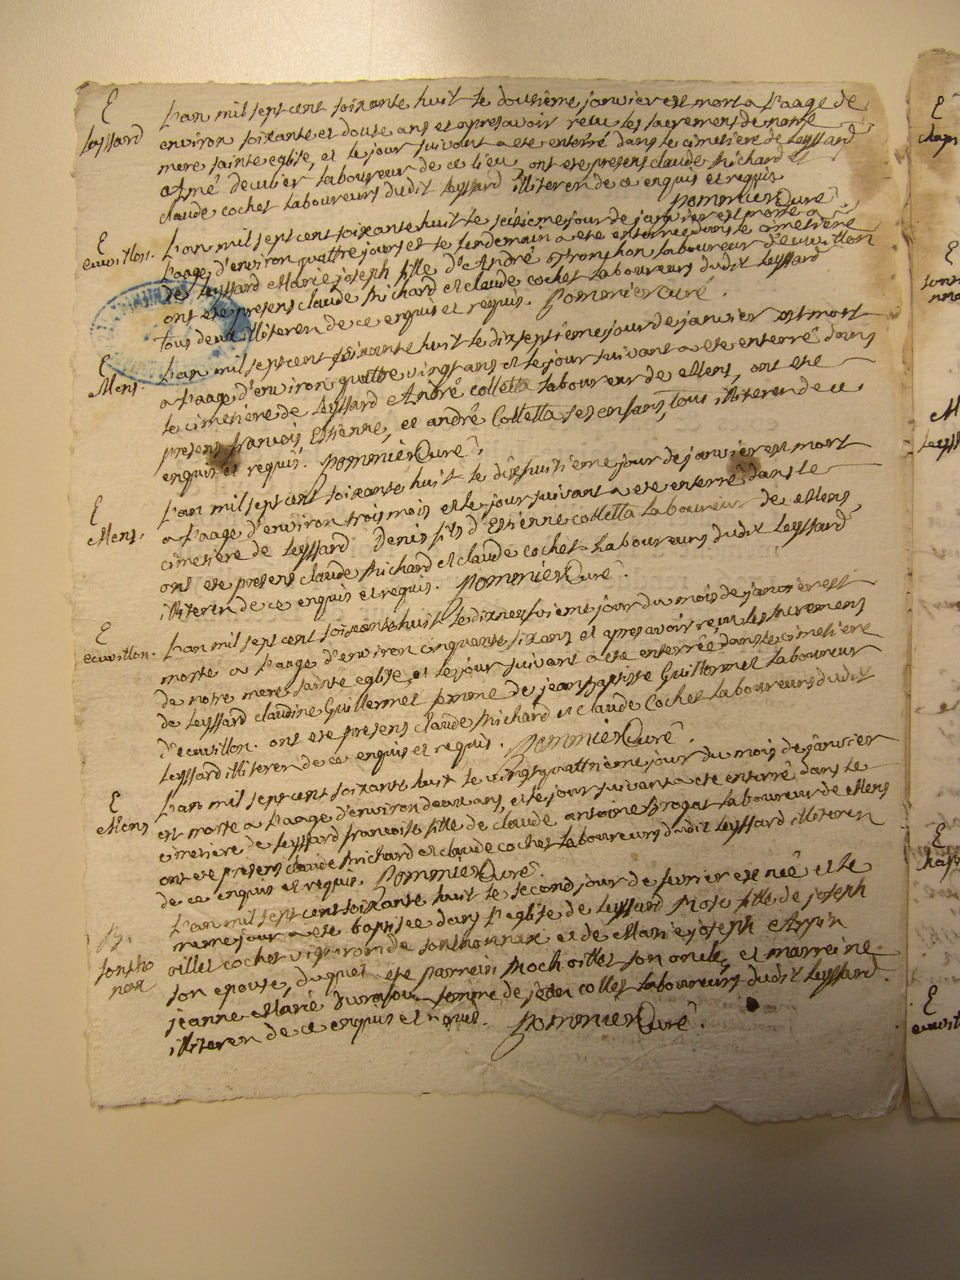 E
Leyssard
L'an mil sept cent soixante huit le dousième janvier est mort a l'aage de
environ soixante et douse ans et apres avoir reçu les sacremens de nostre
mere sainte eglise, et le jour suivant a ete enterré dans le cimetiere de Leyssard
Aimé laboureur de ce lieu, ont ete presens claude Michard et
claude cochet laboureurs dudit Leyssard illiteren de ce enquis et requis
Pommier Curé.
E
ecuvillon.
L'an mil sept cent soixante huit le seisieme jour de janvier est morte a
l'aage d'environ quattre jours et le lendemain a ete enterrée dans le cimetière
de Leyssard Marie joseph fille d'André laboureur d'ecuvillon
ont ete presens claude Michard et claude cochet laboureurs dudit Leyssard
tous deux illiteren de ce enquis et requis. Pommier Curé.
E
Mens.
L'an mil sept cent soixante huit le dixseptième jour de janvier est mort
a l'aage d'environ quattre vingt ans et le jour suivant a ete enterré dans
le cimetiere de Leyssard André colletta laboureur de Mens, ont ete
presens francois, Estienne, et andré Colletta ses enfans, tous illiteren de ce
enquis et requis. Pommier Curé.
E
Mens.
L'an mil sept cent soixante huit le dixhuitieme jour de janvier est mort
a l'aage d'environ trois mois et le jour suivant a ete enterré dans le
cimetiere de Leyssard Denis fils d'Estienne colletta laboureur de Mens,
ont ete presens claude Michard et claude cochet laboureurs dudit Leyssard
illiteren de ce enquis et requis. Pommier Curé.
E
ecuvillon.
L'an mil sept cent soixante huit le dixneufvieme jour du mois de janvier est
morte a l'aage d'environ cinquante six ans et apres avoir reçu les sacremens
de notre mere sainte eglise, et le jour suivant a ete enterrée dans le cimetiere
de Leyssard claudine Guillermet femme de jean baptiste Guillermet laboureur
d'ecuvillon. ont ete presens claude Michard et claude Cochet laboureurs dudit
Leyssard illiteren de ce enquis et requis. Pommier Curé.
E
Mens
L'an mil sept cent soixante huit le vingtquattrieme jour du mois de janvier
est morte a l'aage d'environ deux ans, et le jour suivant a ete enterré dans le
cimetiere de Leyssard francoise fille de claude antoine Brogat laboureur de Mens
ont ete presens claude Michard et claude cochet laboureurs dudit Leyssard illiteren
de ce enquis et requis. Pommier Curé.
B.
sontho
nax
L'an mil sept cent soixante huit le second jour de fevrier est née et le
meme jour a ete baptisée dans l'eglise de Leyssard fille de joseph
oillet cochet vigneron de sonthonnax et de Marie joseph
son epouse, duquel ete parrein Roch oillet son oncle, et marreine
jeanne Marie femme de collet laboureurs dudit Leyssard
illiteren de ce enquis et requis. Pommier Curé.